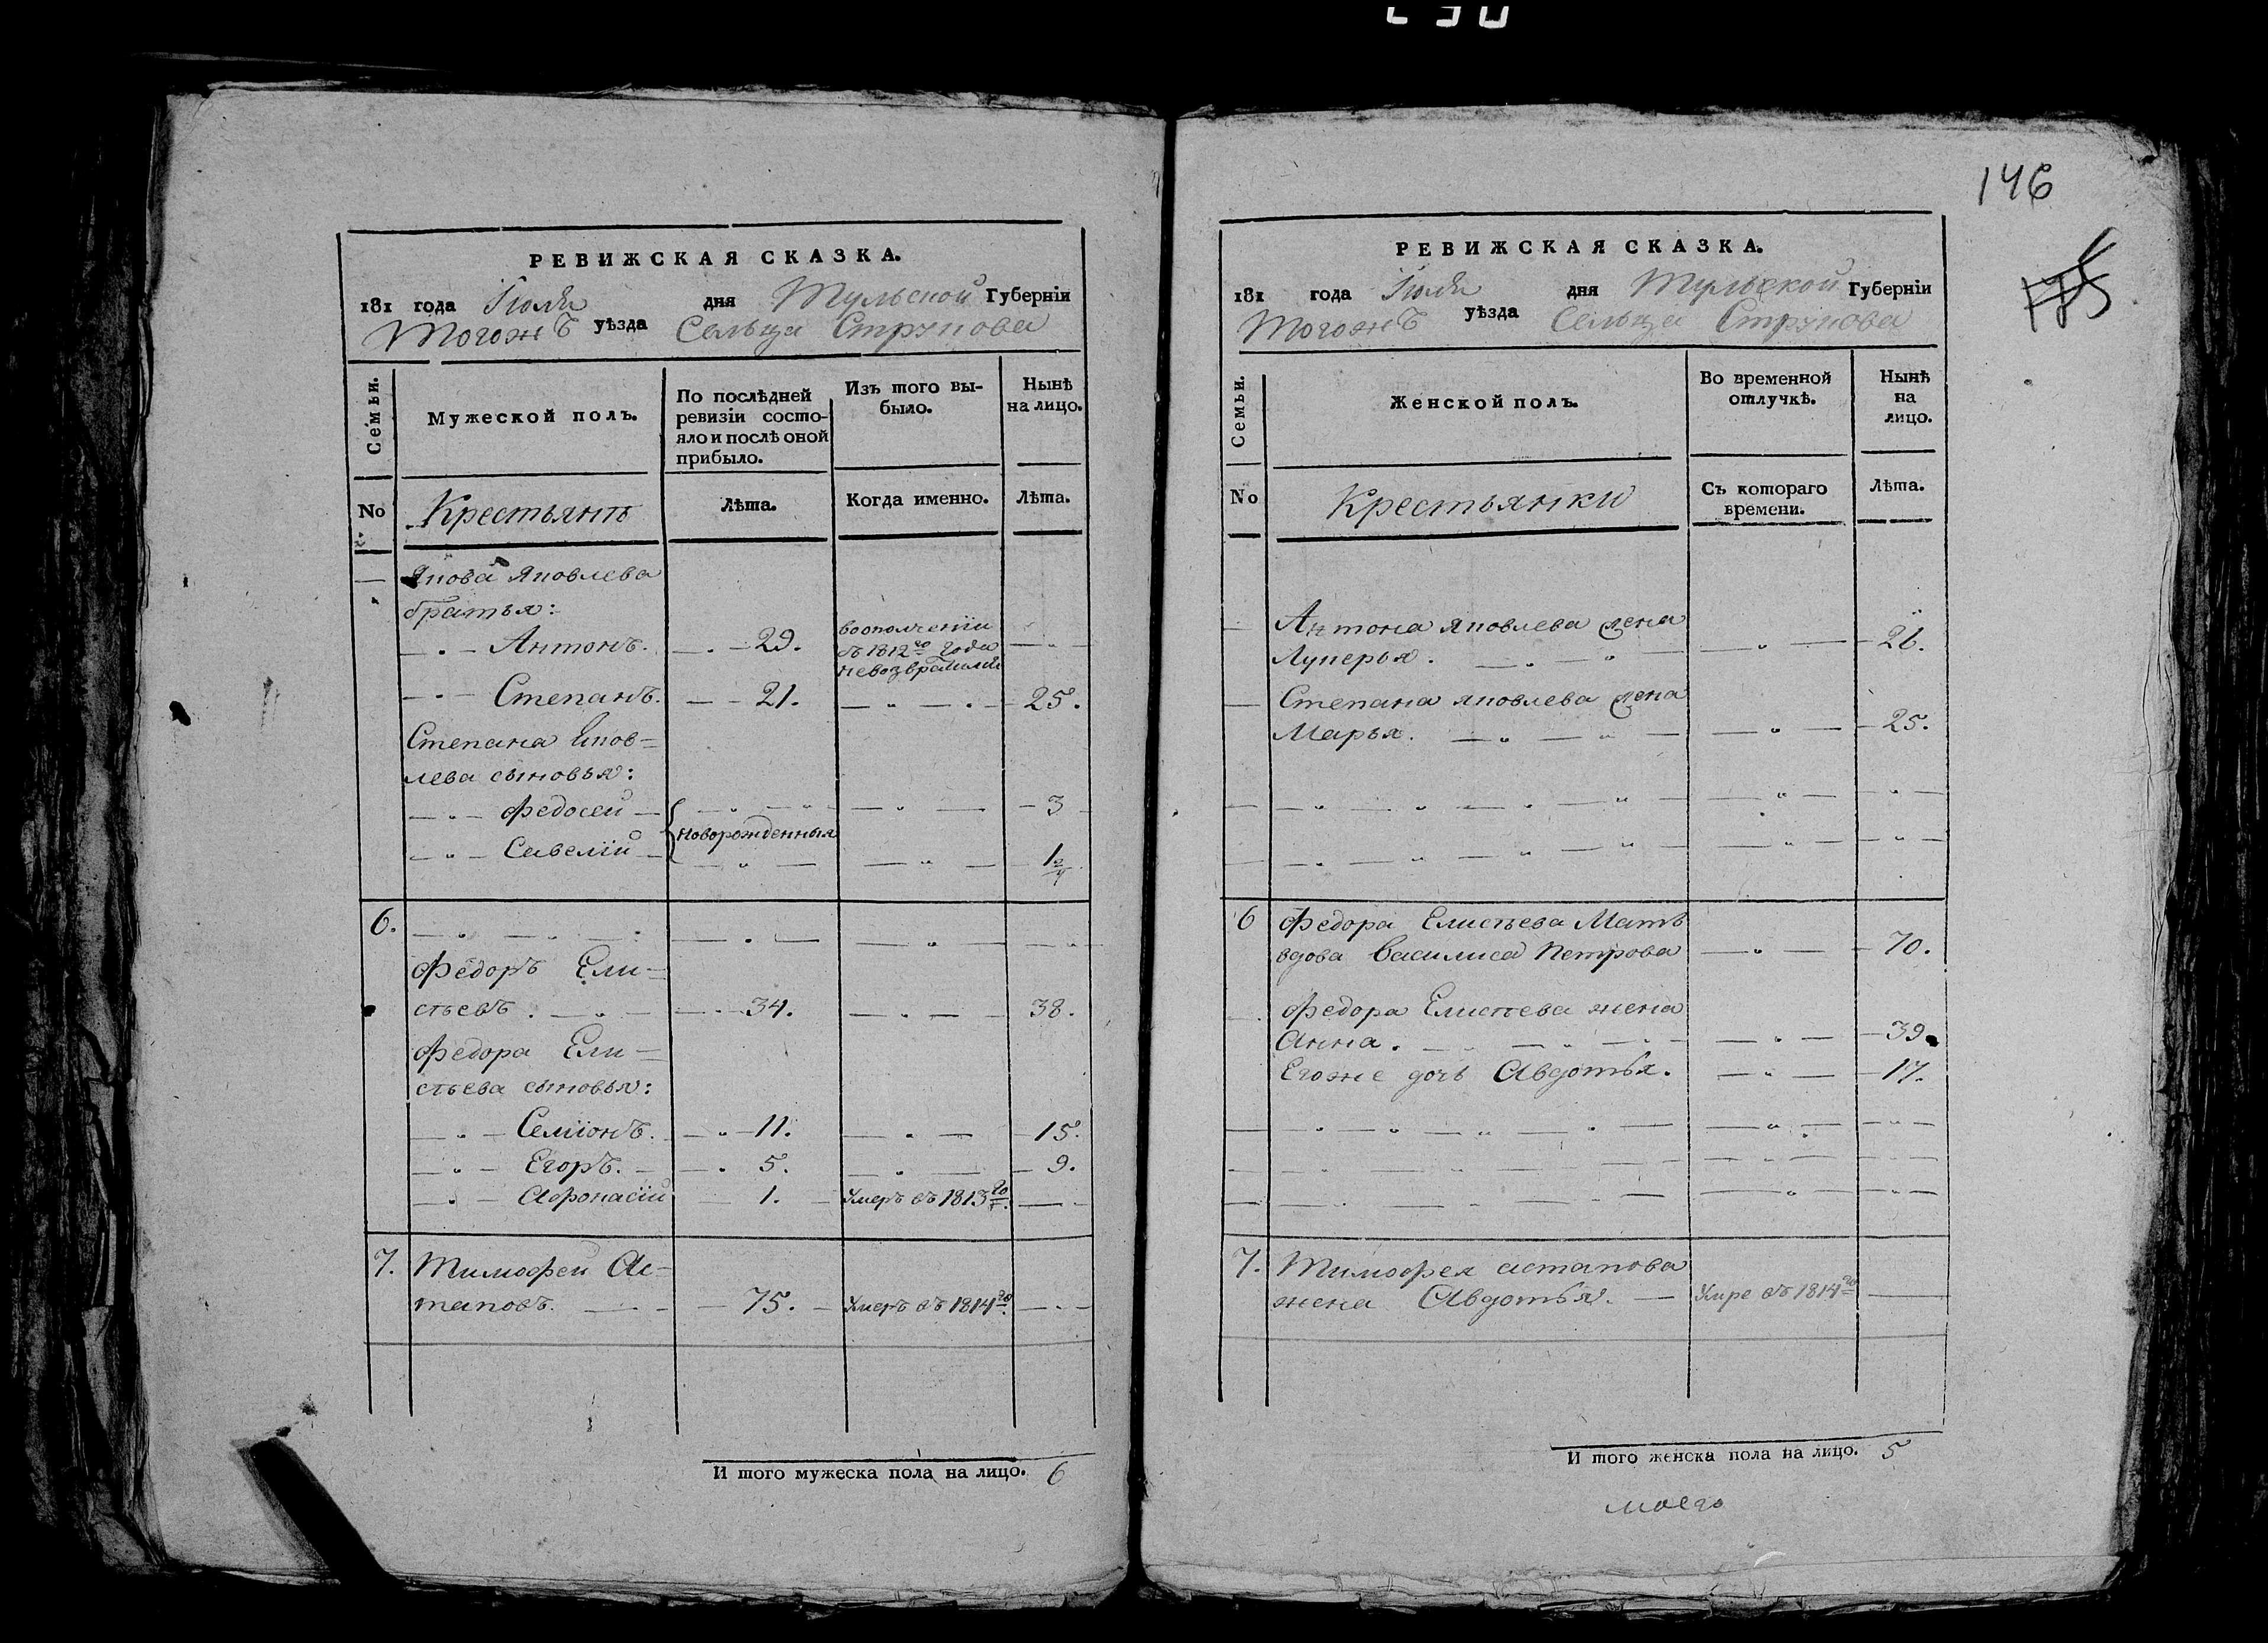 РЕВИЖСКАЯ СКАЗКА.
181 года Июля дня Тульской Губернїи
Тогожъ уѣзда Сельца Струкова
Семьи.
Мужеской полъ.
По послѣдней ревизїи состояло и послѣ оной прибыло.
Изъ того выбыло.
Нынѣ на лицо.
No
Крестьянъ
Лѣта.
Когда именно.
Лѣта.
Якова Яковлева
братья:
Антонъ. 29. воополченїи въ 1812го года невозвратился
Степанъ. 21. 25.
Степана Яков=
лева сыновья:
Федосей 3
новорожденныя
Савелїй 1
6.
Федоръ Ели=
сѣевъ. 34. 38.
Федора Ели=
сѣева сыновья:
Семїонъ. 11. 15.
Егоръ. 5. 9.
Афонасїй 1. Умеръ въ 1813го.
7. Тимофей Ас=
таповъ. 75. Умеръ въ 1814го.
И того мужеска пола на лицо. 6
146
РЕВИЖСКАЯ СКАЗКА.
181 года Июля дня Тульской Губернїи
Тогожъ уѣзда Сельца Струкова
Семьи.
Женской полъ.
Во временной отлучкѣ.
Нынѣ на лицо.
No
Крестьянки
Съ котораго времени.
Лѣта.
Антона Яковлева жена
Лукерья. 26.
Степана Яковлева жена
Марья. 25.
6 Федора Елисѣева Мать
вдова Василиса Петрова 70.
Федора Елисѣева жена
Анна. 39.
Егоже дочь Авдотья. 17.
7. Тимофея астапова
жена Авдотья. Умре въ 1814го
И того женска пола на лицо. 5
моего